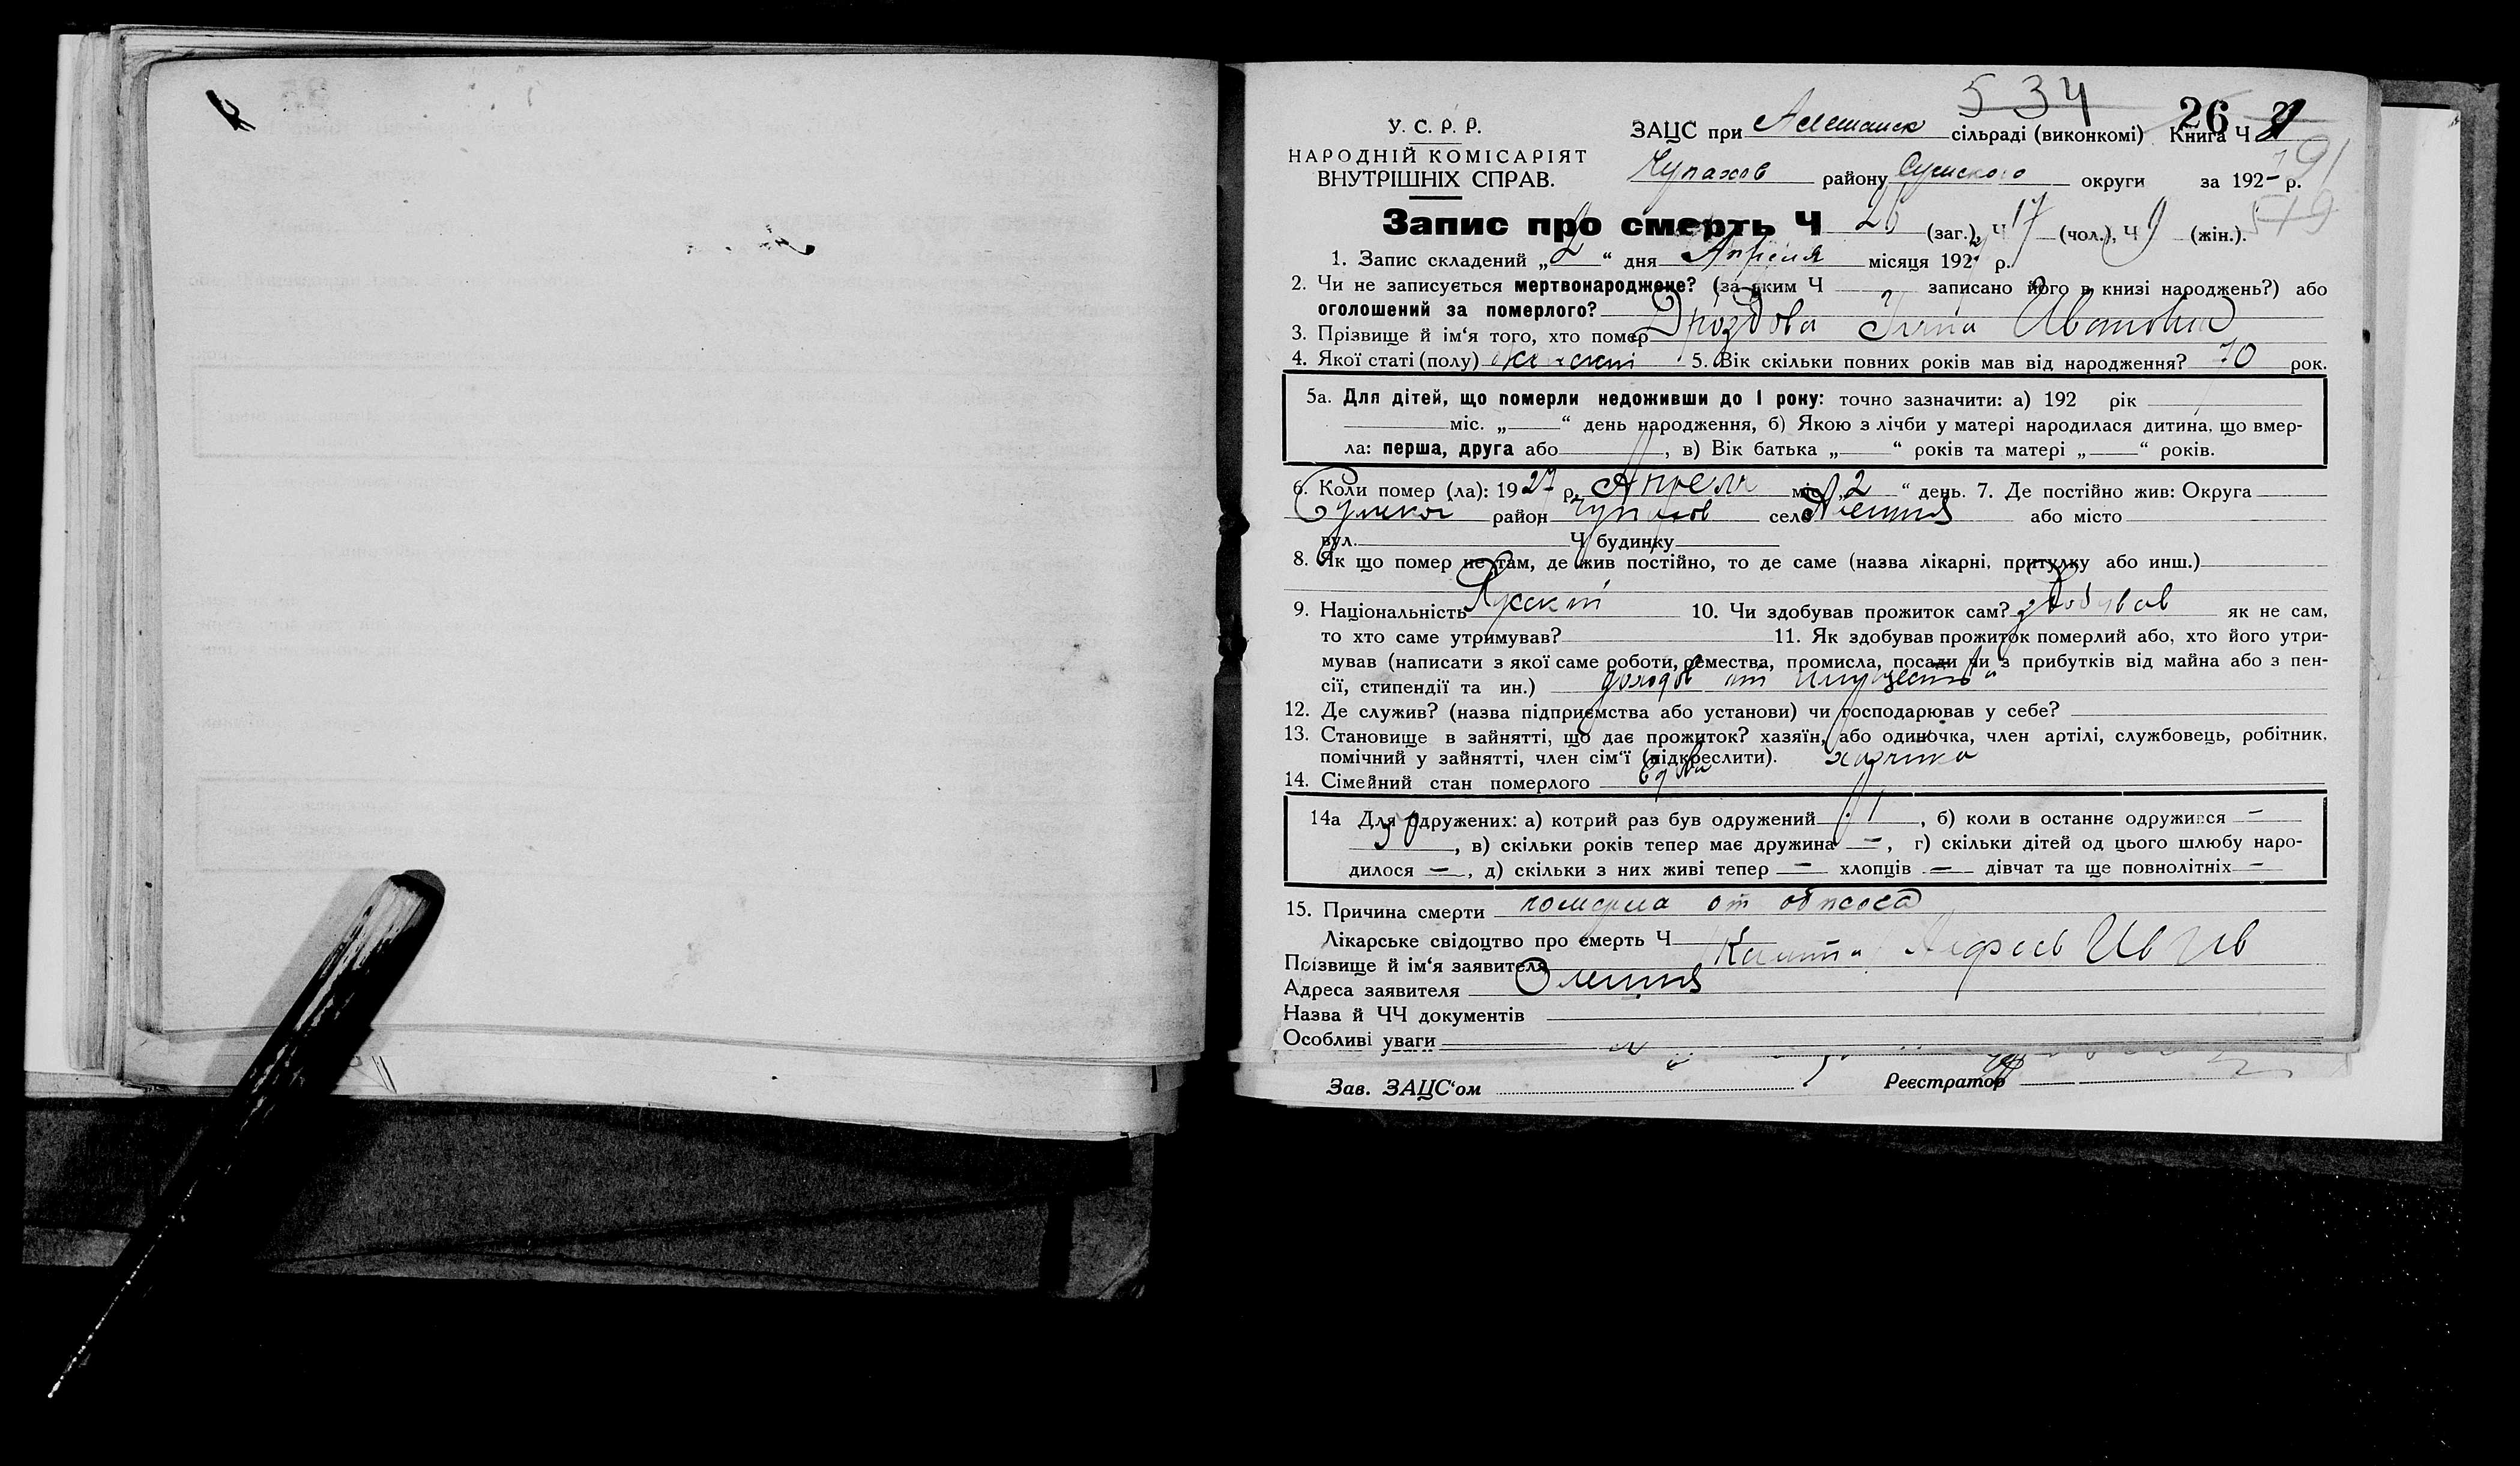 534
26
У. С. Р. Р.
ЗАЦС при Алешанск сільраді (виконкомі) Книга Ч
НАРОДНІЙ КОМІСАРІЯТ
ВНУТРІШНІХ СПРАВ.
Чупахов району Сумского округи за 192- р.
Запис про смерть Ч 26 (заг.), Ч 17 (чол.), Ч 9 (жін.).
1. Запис складений „2“ дня Апреля місяця 1927 р.
2. Чи не записується мертвонароджене? (за яким Ч записано його в книзі народжень?) або
оголошений за померлого?
3. Прізвище й ім‘я того, хто помер Дроздова Ивановна
4. Якої статі (полу) женский 5. Вік скільки повних років мав від народження? 70 рок.
5а. Для дітей, що померли недоживши до 1 року: точно зазначити: а) 192 рік
міс. „ “ день народження, б) Якою з лічби у матері народилася дитина, що вмер-
ла: перша, друга або , в) Вік батька „ “ років та матері „ “ років.
6. Коли помер (ла): 1927 р. Апреля міс. „2“ день. 7. Де постійно жив: Округа
Сумска район Чупахов село Алешня або місто
вул. Ч будинку
8. Як що помер не там, де жив постійно, то де саме (назва лікарні, притулку або инш.)
9. Національність Русский 10. Чи здобував прожиток сам? здобував як не сам,
то хто саме утримував? 11. Як здобував прожиток померлий або, хто його утри-
мував (написати з якої саме роботи, ремества, промисла, посади чи з прибутків від майна або з пен-
сії, стипендії та ин.) доходов от имущества
12. Де служив? (назва підприємства або установи) чи господарював у себе?
13. Становище в зайнятті, що дає прожиток? хазяїн, або одиночка, член артілі, службовець, робітник.
помічний у зайнятті, член сім‘ї (підкреслити).
14. Сімейний стан померлого
14а Для одружених: а) котрий раз був одружений 1, б) коли в останнє одружився -
, в) скільки років тепер має дружина -, г) скільки дітей од цього шлюбу наро-
дилося -, д) скільки з них живі тепер - хлопців - дівчат та ще повнолітніх -
15. Причина смерти померла от
Лікарське свідоцтво про смерть Ч
Прізвище й ім‘я заявителя
Адреса заявителя Олешня
Назва й ЧЧ документів
Особливі уваги
Зав. ЗАЦС‘ом Реєстратор